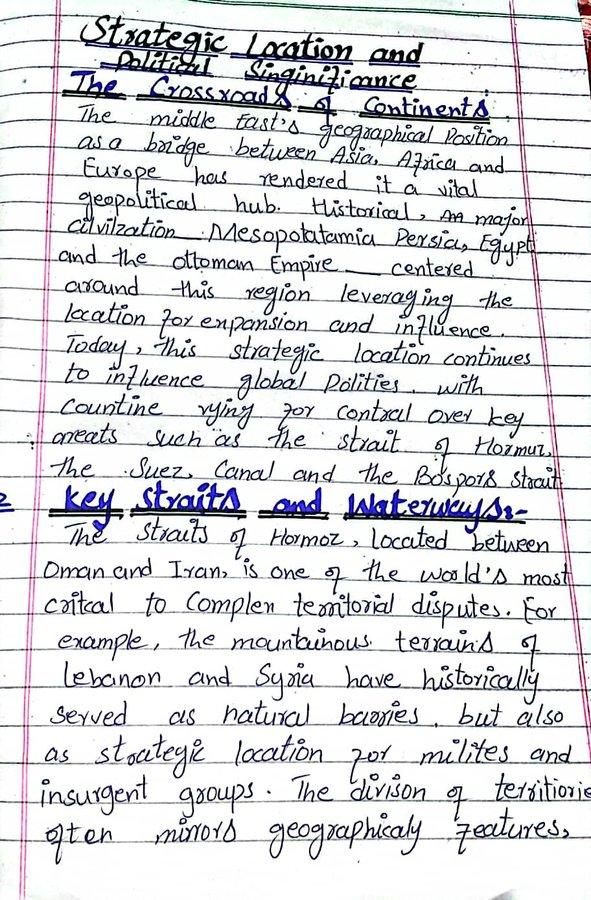 Strategic Location and
Political Singinificance
The Crossroads of Continents
The middle East's geographical Position
as a bridge between Asia, Africa and
Europe has rendered it a vital
geopolitical hub. Historical, major
cilvilzation Mesopotatamia Persia, Egypt
and the ottoman Empire __ centered
around this region leveraging the
location for expansion and influence.
Today, this strategic location continues
to influence global Polities. with
Countine vying for contral over key
areats such as the strait of Hormuz,
the Suez, Canal and the Bospors strait
2 Key straits and Waterways:-
The straits of Hormoz, located between
Oman and Iran, is one of the world's most
critcal to Complen territorial disputes. For
example, the mountainous terrains of
Lebanon and Syria have historically
served as natural barries, but also
as strategic location for milites and
insurgent groups. The divison of territiorie
often mirrors geographicaly features,